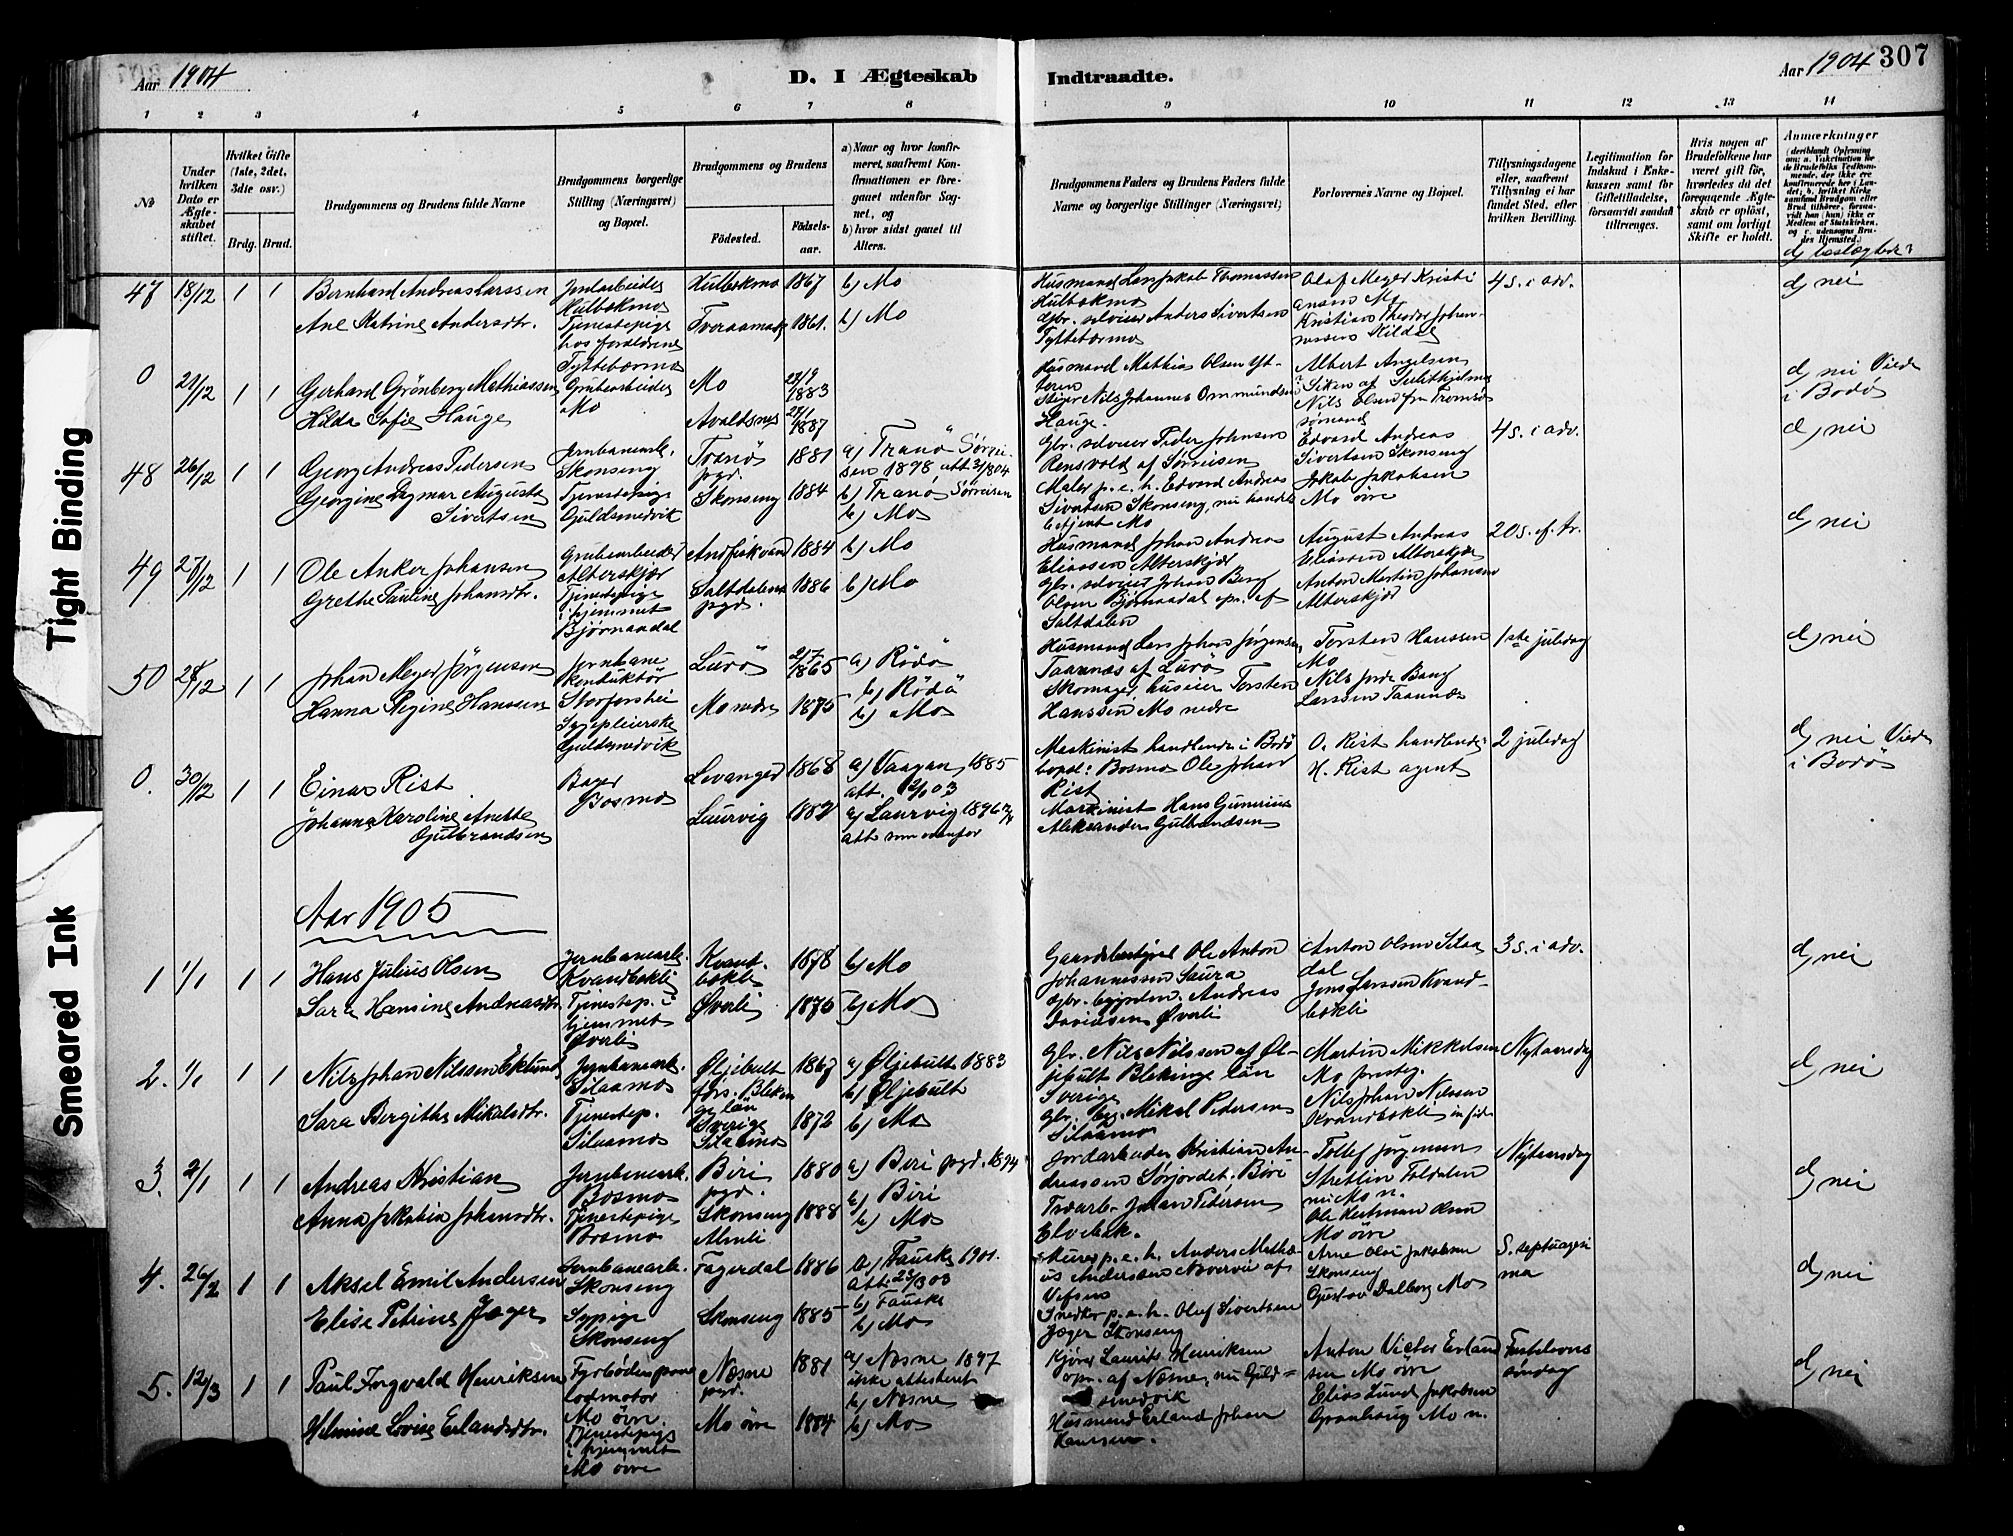 Aar 1904
D. I Ægteskab Indtraadte.
Aar 1904 307
1 2 3 4 5 6 7 8 9 10 11 12 13 14
No
Under hvilken Dato er Ægteskabet stiftet.
Hvilket Gifte (1ste, 2det, 3die osv.)
Brdg. Brud.
Brudgommens og Brudens fulde Navne
Brudgommens borgerlige Stilling (Næringsvei) og Bopæl.
Brudgommens og Brudens
Fødested. Fødselsaar.
a) Naar og hvor konfirmeret, saafremt Konfirmationen er foregaaet udenfor Sognet, og
b) hvor sidst gaaet til Alters.
Brudgommens Faders og Brudens Faders fulde Navne og borgerlige Stillinger (Næringsvei)
Forlovernes Navne og Bopæl.
Tillysningsdagene eller, saafremt Tillysning ei har fundet Sted, efter hvilken Bevilling.
Legitimation for Indskud i Enkekassen samt for Giftetilladelse, forsaavidt saadan tiltrænges.
Hvis nogen af Brudefolkene har været gift før, hvorledes da det foregaaende Ægteskab er opløst, samt om lovligt Skifte er holdt.
Anmærkninger
d) beslægtede?
47 18/12 1 1
Bernhard Andreas Larssen
Ane Katrine Andersdtr.
Jordarbeider
Hulbækmo
Tjenestepige
hos forældrene
Tyttebærmo
Hulbækmo 1867 b) Mo
Tveraamo 1861. b) Mo
Husmand Lars Jakob Thomassen
Hulbækmo
Gbr. selveier Anders Sivertsen
Tyttebærmo
Olaf Meyer Kristiansen Mo
Kristian Theodor Johannessen Kildal
4 s. i adv.
d) nei
0 21/12 1 1
Gerhard Grönberg Mathiassen
Hilda Sofie Hauge
Grubearbeider
Mo
Mo 1883
Avaldsnes 1887
Husmand Mathias Olsen Ytteren
Stiger Nils Johannes Ommundsen
Hauge.
Albert Angelsen
Nils Olsen fra Tromsö
d) nei Viede
i Bodö
48 26/12 1 1
Georg Andreas Pedersen
Georgine Dagmar Augusta
Sivertsen
Jernbanearb.
Skonseng
Tjenestepige
Guldsmedvik
Tranö pgd. 1881
Skonseng 1884
a) Tranö Sørreisen 1898
b) Tranö Sørreisen
b) Mo
Gbr. selveier Peder Johnsen
Rensvold af Sørreisen
Maler p. e. h. Edvard Andreas
Sivertsen Skonseng, nu handelsbetjent Mo
Edvard Andreas
Sivertsen Skonseng
Jakob Jakobsen
Mo øvre
4 s. i adv.
d) nei
49 27/12 1 1
Ole Anker Johansen
Grethe Pauline Johansdtr.
Grubearbeider
Alterskjær
Tjenestepige
i hjemmet
Bjørnaadal
Andfiskvand 1884 b) Mo
Saltdalens pgd. 1886 b) Mo
Husmand Johan Andreas
Eliassen Alterskjær
Gbr. selveier Johan Berg
Olsen Bjørnaadal opr. af
Saltdalen
August Andreas
Eliassen Alterskjær
Anton Martin Johansen
Alterskjær
20 s. ef. tr.
d) nei
50 28/12 1 1
Johan Meyer Jörgensen
Hanna Regine Hanssen
Jernbanekonduktør
Storforshei
Sygepleierske
Guldsmedvik
Lurö 2/7 1865
Mo nedre 1875
a) Rödö
b) Rödö
b) Mo
Husmand Lars Johan Jørgensen
Taanæs af Lurö
Skomager, huseier Torsten
Hanssen Mo nedre
Torsten Hanssen
Mo
Nils Jorde Bang
Larssen Taanæs
1ste juledag
d) nei
0. 30/12 1 1
Einar Rist
Johanna Karoline Anette
Gulbrandsen
Bager
Bosmo
Levanger 1868
Laurvig 1882
a) Vaagan, 1885
att. 12/1 03
a) Laurvig 1896
att. som ovenfor
Maskinist handlende i Bodö
bopæl: Bosmo Ole Johan
Rist
Maskinist Hans Gunerius
Aleksander Gulbrandsen
O. Rist handlende
H. Rist agent
2 juledag
d) nei Viede
i Bodö
Aar 1905
1 1/1 1 1
Hans Julius Olsen
Sara Hansine Andreasdtr.
Jernbanearb.
Kvandbækli
Tjenestep. i
hjemmet
Øverli
Kvandbækli 1878 b) Mo
Øverli 1875 b) Mo
Gaardsbestyrer Ole Anton
Johannessen Saura
Gbr. bygselm. Andreas
Davidsen Øverli
Anton Olsen Silaadal
Jens Larssen Kvandbækli
3 s. i adv.
d) nei
2. 1/1 1 1
Nils Johan Nilssen Eklund
Sara Bergithe Mikalsdtr.
Jernbanearb.
Silaamo
Tjenestep.
Silaamo
Öljehult
förs. Blekinge län
Sverige 1867
Silaamo 1872
a) Öljehult 1883
b) Öljehult
b) Mo
Gbr. Nils Nilssen af Öljehult Blekinge län
Sverige
Gbr. byg. Mikal Pedersen
Silaamo
Martin Mikkelsen
Mo prestg.
Nils Johan Nilssen
Kvandbækli
Nytaarsdag
d) nei
3. 2/1 1 1
Andreas Kristian
Anna Jakobia Johansdtr.
Jernbanearb.
Bosmo
Tjenestepige
Bosmo
Biri pgd. 1880
Skonseng Almli 1888
a) Biri pgd. 1894
b) Biri
b) Mo
Jordarbeider Kristian Andreassen Sørjordet, Biri
Johan Petersen
Tollef Jørgensen
Mo n.
Mo øvre
Nytaarsdag
d) nei
4. 26/2 1 1
Aksel Emil Andersen
Elise Petrine Jæger
Jernbanearb.
Skonseng
Sypige
Skonseng
Fagerdal 1886
Skonseng 1885
a) Fauske 1901.
att. 23/3 03
b) Fauske
b) Mo
Murer p. e. h. Anders Mathæus Andersen Nævervei af
Vefsen
Snedker p. e. h. Oluf Sivertsen
Jæger Skonseng
Arne Olai Jakobsen
Skonseng
Gustav Dalberg Mo
S. septuagesima
d) nei
5. 12/3 1 1
Paul Torgvald Henriksen
Helmine Lovise Erlandsdtr.
Fyrbøder paa
lodmotor
Mo øvre.
Tjenestepige
i hjemmet
Mo øvre
Næsne pgd. 1881
Mo øvre 1884
a) Næsne 1897
ikke attesteret
b) Næsne
b) Mo
Kjører Laurits Henriksen
opr. af Næsne, nu Guldsmedvik
Husmand Erland Johan
Hanssen.
Anton Victor Erlandsen Mo øvre
Elias Lund Jakobsen
Granhaug Mo n.
Fastelavns
søndag
d) nei
Tight Binding
Smeared Ink